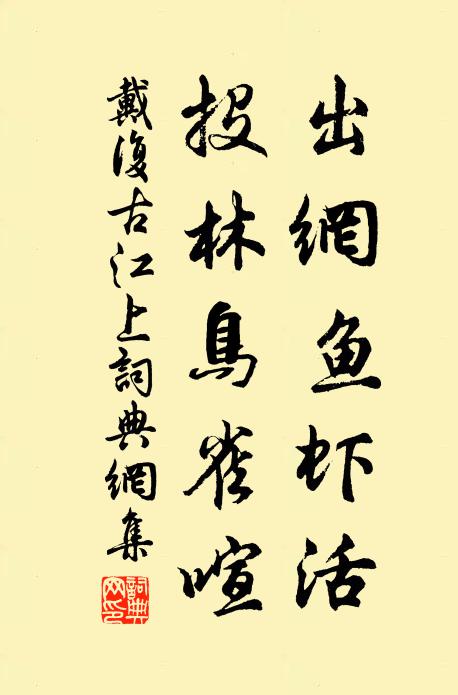 出網魚虾活
投林鳥雀喧
戴復古江上詞典網集
詞典網印